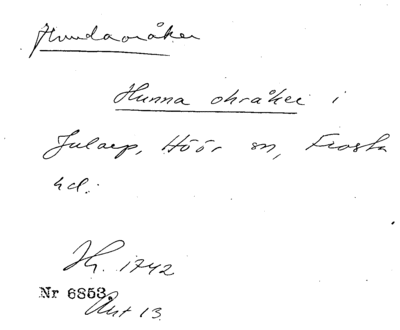 Hundaoråker
Hunna ohråker i
Julaep, Höör sn, Frosta
hd.
Jb. 1742
Nr 6853.
Akt 13.